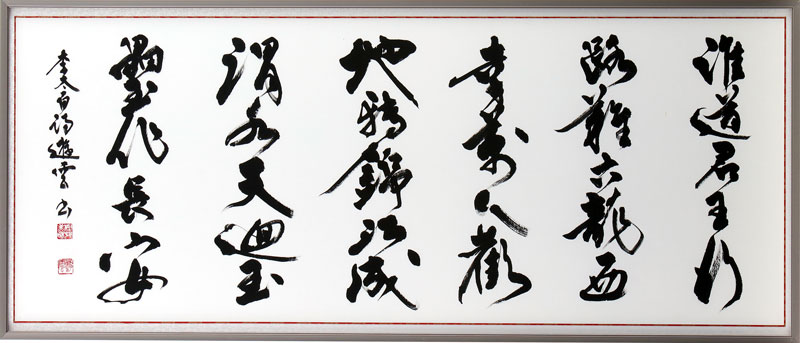 誰道君王行
路難六龍西
幸萬人歡
地轉錦江成
渭水天迴玉
壘作長安
李太白詩遊雲書